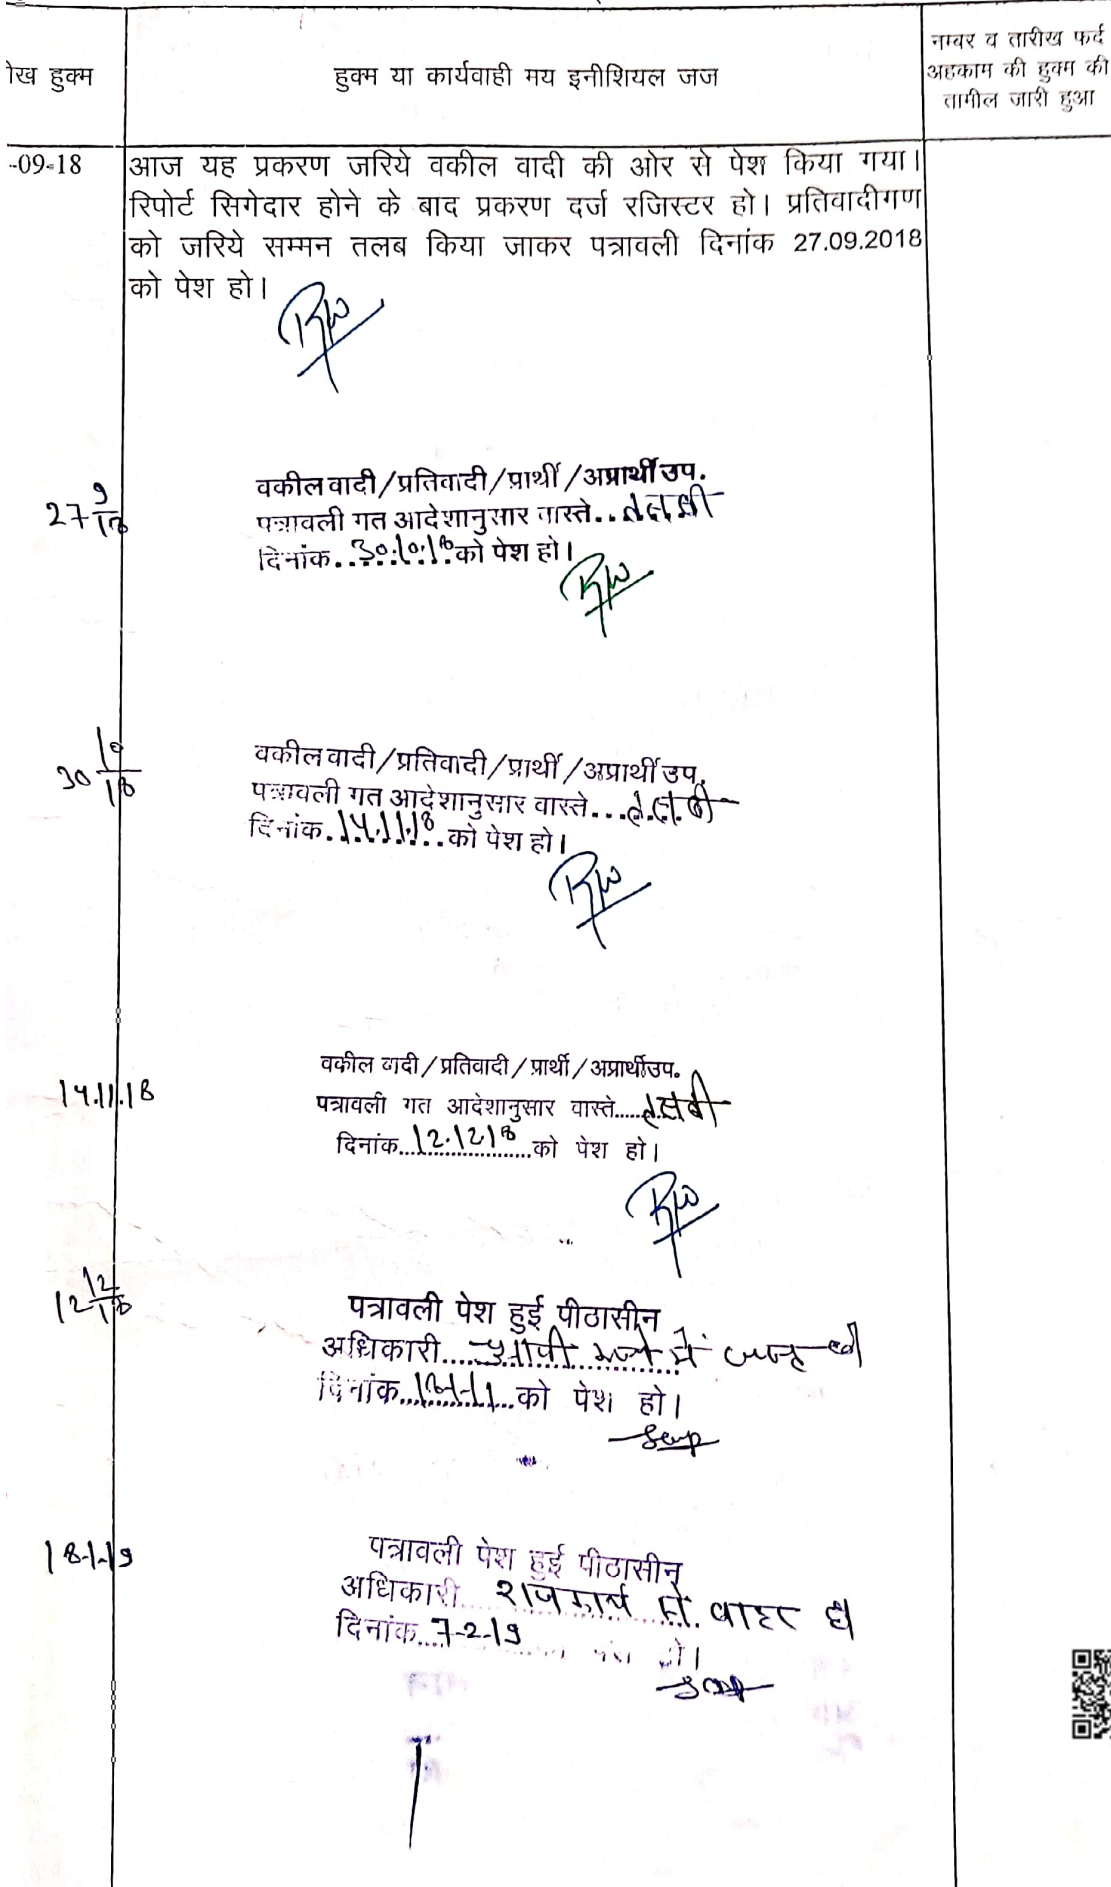 ेख हुक्म
हुक्म या कार्यवाही मय इनीशियल जज
नम्बर व तारीख फर्द
अहकाम की हुक्म की
तामील जारी हुआ
-09-18
आज यह प्रकरण जरिये वकील वादी की ओर से पेश किया गया।
रिपोर्ट सिगेदार होने के बाद प्रकरण दर्ज रजिस्टर हो। प्रतिवादीगण
को जरिये सम्मन तलब किया जाकर पत्रावली दिनांक 27.09.2018
को पेश हो।
27 9/18
वकील वादी/प्रतिवादी/प्रार्थी/अप्रार्थी उप.
पत्रावली गत आदेशानुसार वास्ते..
दिनांक..30.10.18.को पेश हो।
30 10/18
वकील वादी/प्रतिवादी/प्रार्थी/अप्रार्थी उप.
पत्रावली गत आदेशानुसार वास्ते...
दिनांक.14.11.18...को पेश हो।
14.11.18
वकील वादी/प्रतिवादी/प्रार्थी/अप्रार्थीउप.
पत्रावली गत आदेशानुसार वास्ते.....
दिनांक...12.12.18...को पेश हो।
12 12/18
पत्रावली पेश हुई पीठासीन
अधिकारी.... में
दिनांक......को पेश हो।
18-1-19
पत्रावली पेश हुई पीठासीन
अधिकारी... राजकार्य से बाहर है
दिनांक...7-2-19 हो।